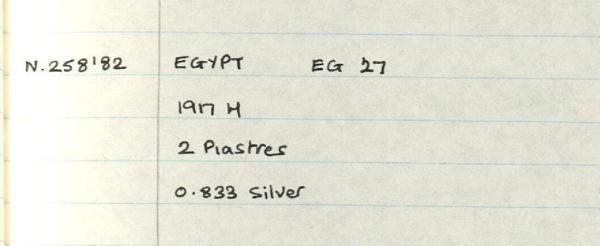 N.258'82 EGYPT EG 27
1917 H
2 Piastres
0.833 Silver